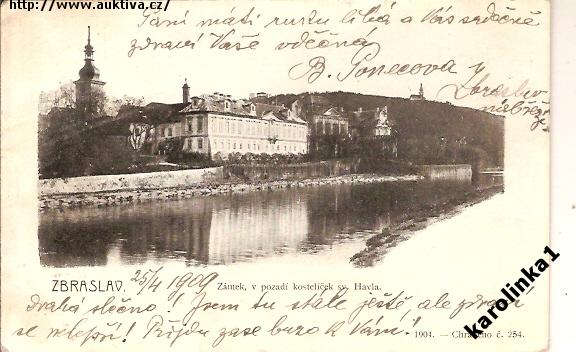 http://www.auktiva.cz/
Paní máti ruku líbá a Vás srdečně
zdraví Vaše vděčná
B. Ponecova
Zbraslav
nábřeží
ZBRASLAV. 25/4 1909 Zámek, v pozadí kostelíček sv. Havla.
Drahá slečno! Jsem tu stále ještě, ale zdraví
se nelepší! Přijdu zase brzo k Vám!
1904. — Chráněno č. 254.
karolinka1